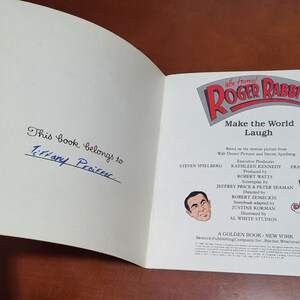 This book belongs to
Tiffany
Who Framed
ROGER RABBI
Make the World
Laugh
Based on the motion picture from
Walt Disney Pictures and Steven Spielberg
Executive Producers
STEVEN SPIELBERG KATHLEEN KENNEDY FRA
Produced by
ROBERT WATTS
Screenplay by
JEFFREY PRICE & PETER SEAMAN
Directed by
ROBERT ZEMECKIS
Storybook adapted by
JUSTINE KORMAN
Illustrated by
AL WHITE STUDIOS
A GOLDEN BOOK · NEW YORK
Western Publishing Company, Inc., Racine, Wisconsin